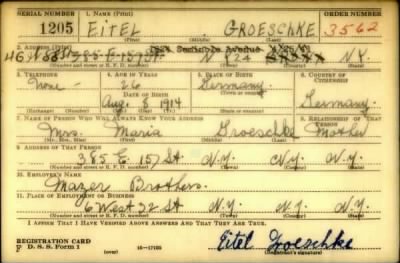 SERIAL NUMBER 1. NAME (Print) ORDER NUMBER
1205 EITEL GROESCHKE 3562
2. ADDRESS (Print)
385 E. 157 St. N.Y.
(Number and street or R. F. D. number) (Town) (County) (State)
3. TELEPHONE 4. AGE IN YEARS 5. PLACE OF BIRTH 6. COUNTRY OF CITIZENSHIP
None - 26 Germany
DATE OF BIRTH (Town or county)
Aug. 8 1914 Germany
(Exchange) (Number) (Mo.) (Day) (Yr.) (State or country)
7. NAME OF PERSON WHO WILL ALWAYS KNOW YOUR ADDRESS 8. RELATIONSHIP OF THAT PERSON
Mrs. Maria Groeschke Mother
(Mr., Mrs., Miss) (First) (Middle) (Last)
9. ADDRESS OF THAT PERSON
385 E 157 St N.Y. N.Y.
(Number and street or R. F. D. number) (Town) (County) (State)
10. EMPLOYER'S NAME
Mazer Brothers.
11. PLACE OF EMPLOYMENT OR BUSINESS
6 West 32 St N.Y. N.Y. N.Y.
(Number and street or R. F. D. number) (Town) (County) (State)
I AFFIRM THAT I HAVE VERIFIED ABOVE ANSWERS AND THAT THEY ARE TRUE.
REGISTRATION CARD
D. S. S. Form 1 (over) 16-17105 Eitel Groeschke
(Registrant's signature)